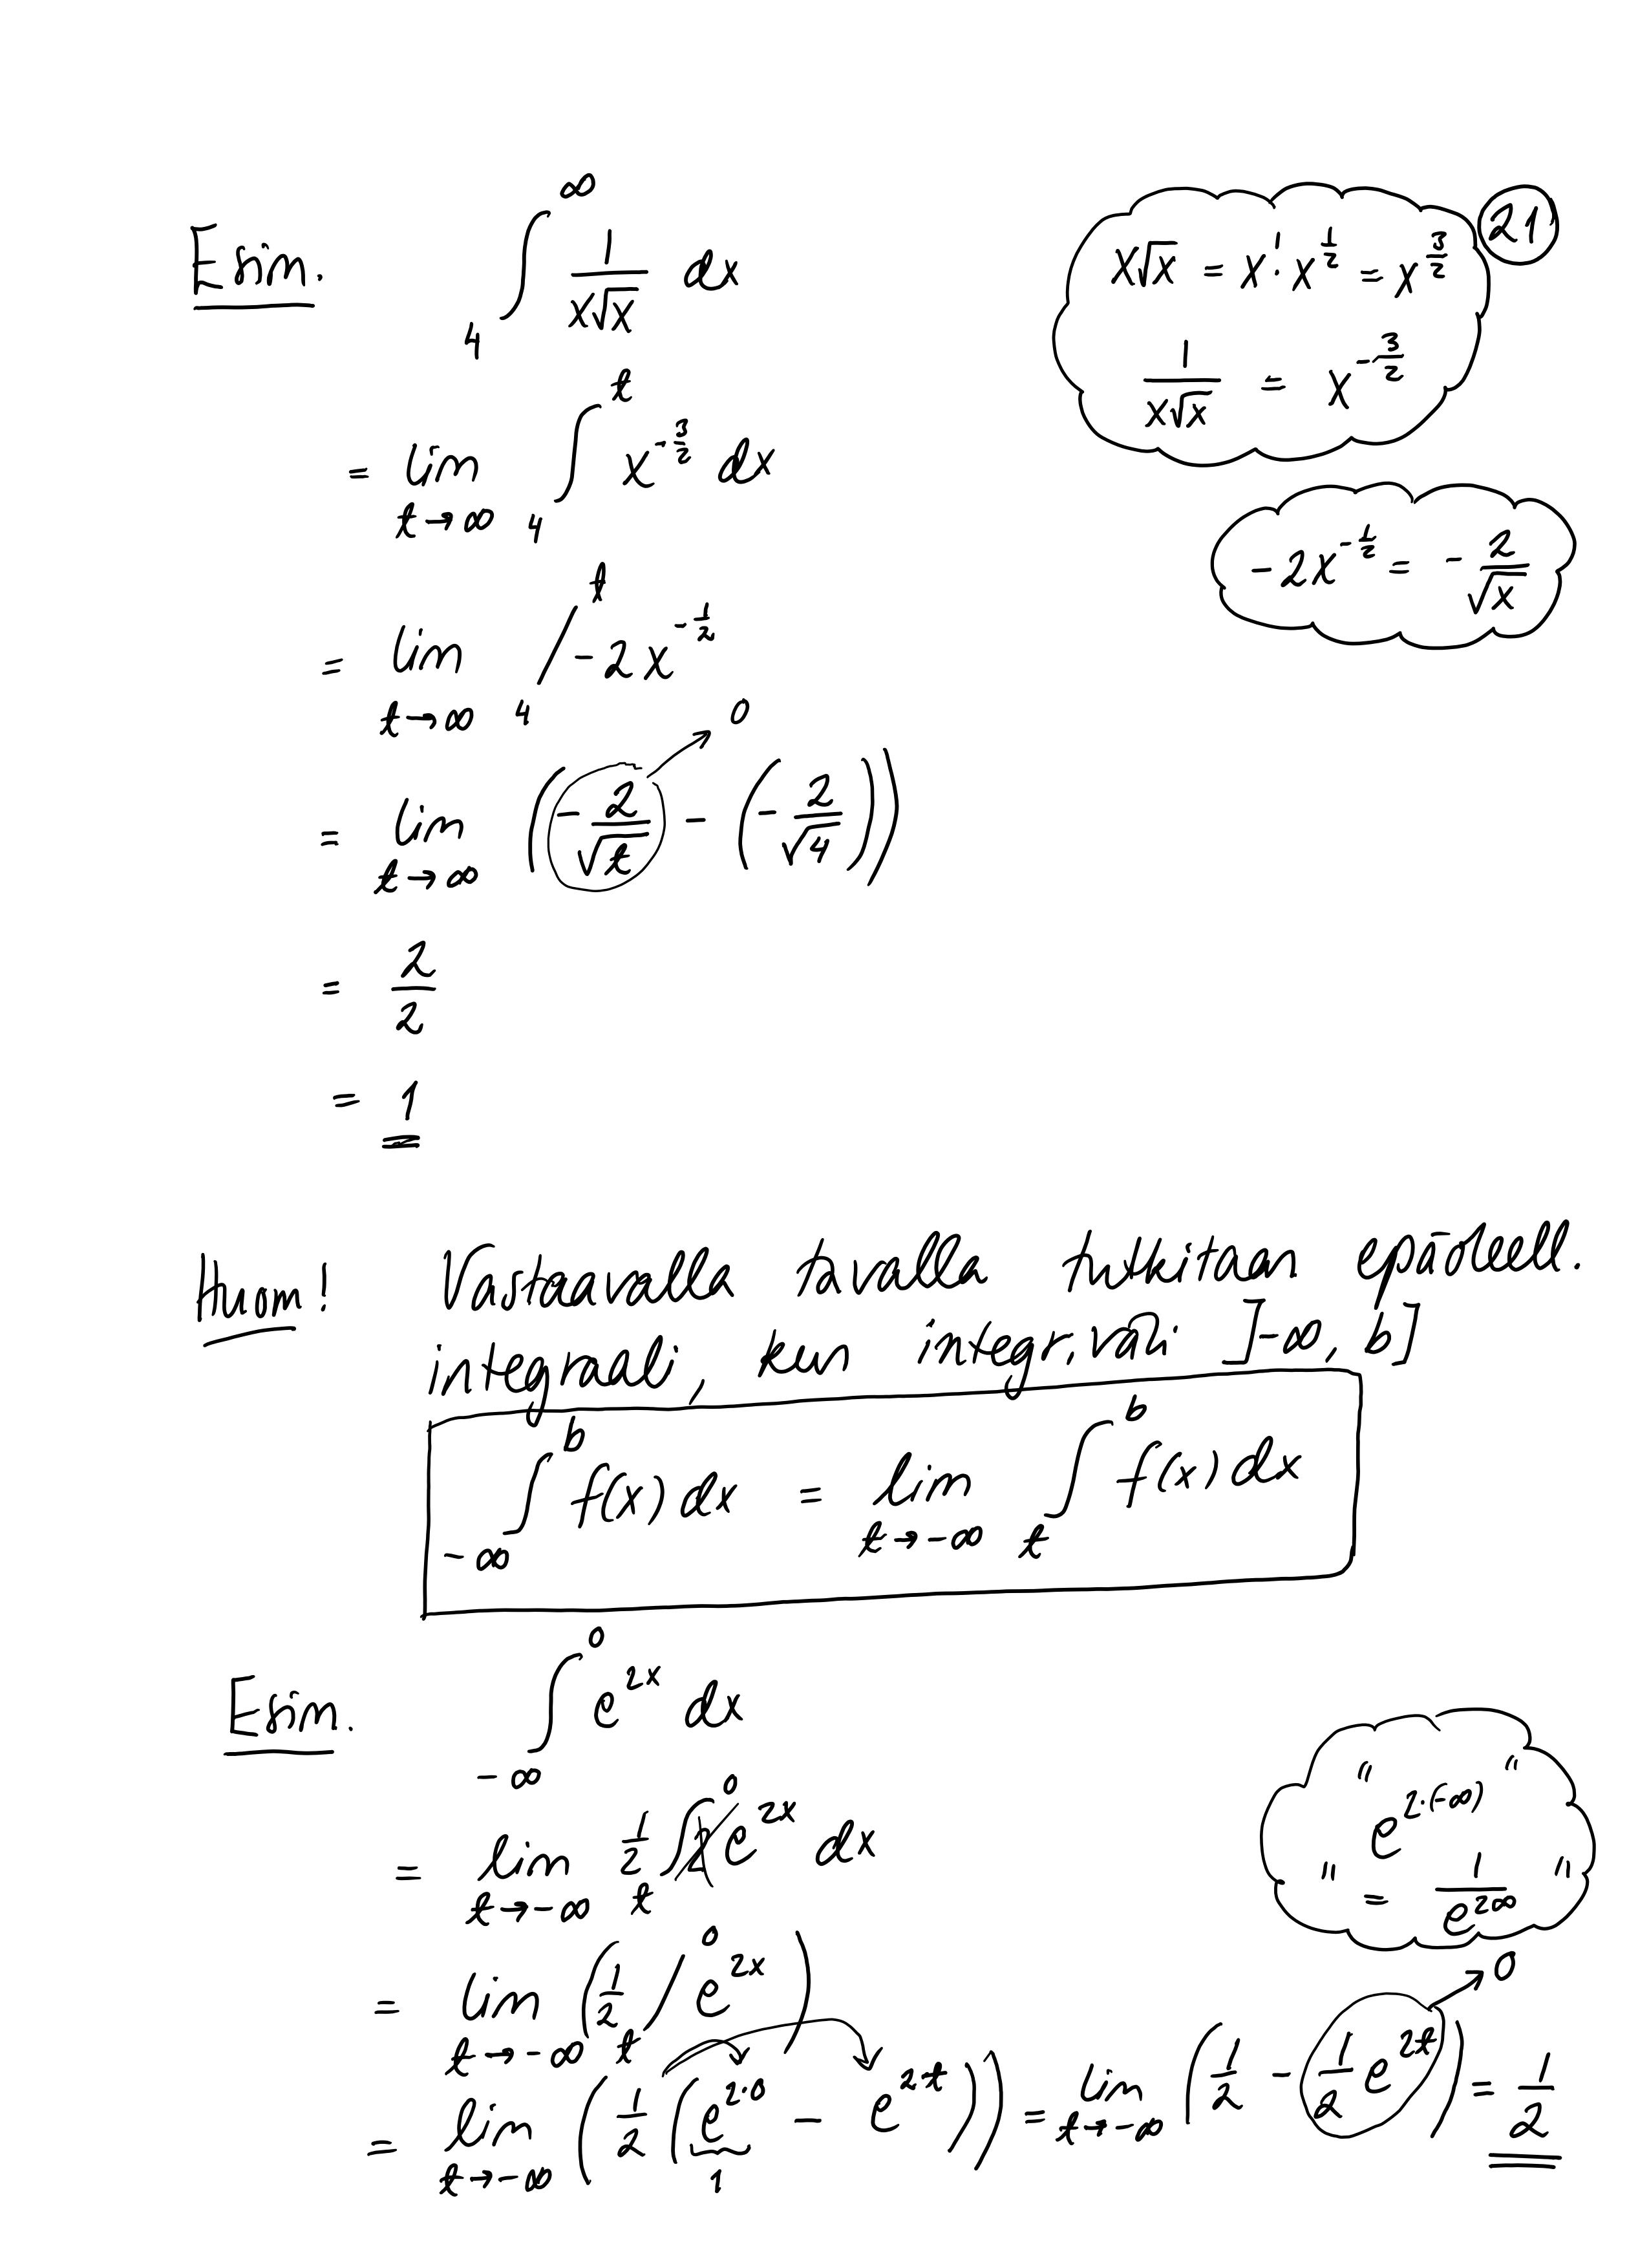 21
Esim. ∫_4^∞ 1/(x√x) dx
x√x = x^1 · x^(1/2) = x^(3/2)
1/(x√x) = x^(-3/2)
= lim_(t→∞) ∫_4^t x^(-3/2) dx
-2x^(-1/2) = - 2/√x
= lim_(t→∞) /_4^t -2x^(-1/2)
= lim_(t→∞) (-2/√t - (-2/√4)) → 0
= 2/2
= 1
Huom! Vastaavalla tavalla tutkitaan epäoleell.
integraali, kun integr.väli ]-∞, b]
∫_(-∞)^b f(x) dx = lim_(t→-∞) ∫_t^b f(x) dx
Esim. ∫_(-∞)^0 e^(2x) dx
= lim_(t→-∞) 1/2 ∫_t^0 2e^(2x) dx
" e^(2·(-∞)) "
" = 1/e^(2∞) "
= lim_(t→-∞) (1/2 /_t^0 e^(2x))
= lim_(t→-∞) (1/2 (e^(2·0) - e^(2·t))) = lim_(t→-∞) (1/2 - 1/2 e^(2t)) = 1/2
1
→ 0